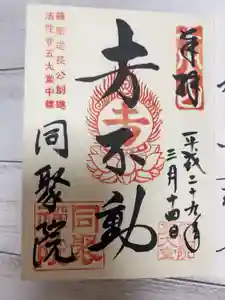 奉拝
平成二十九年
三月十四日
十万不動
同聚院
藤原道長公創建
法性寺五大堂中尊